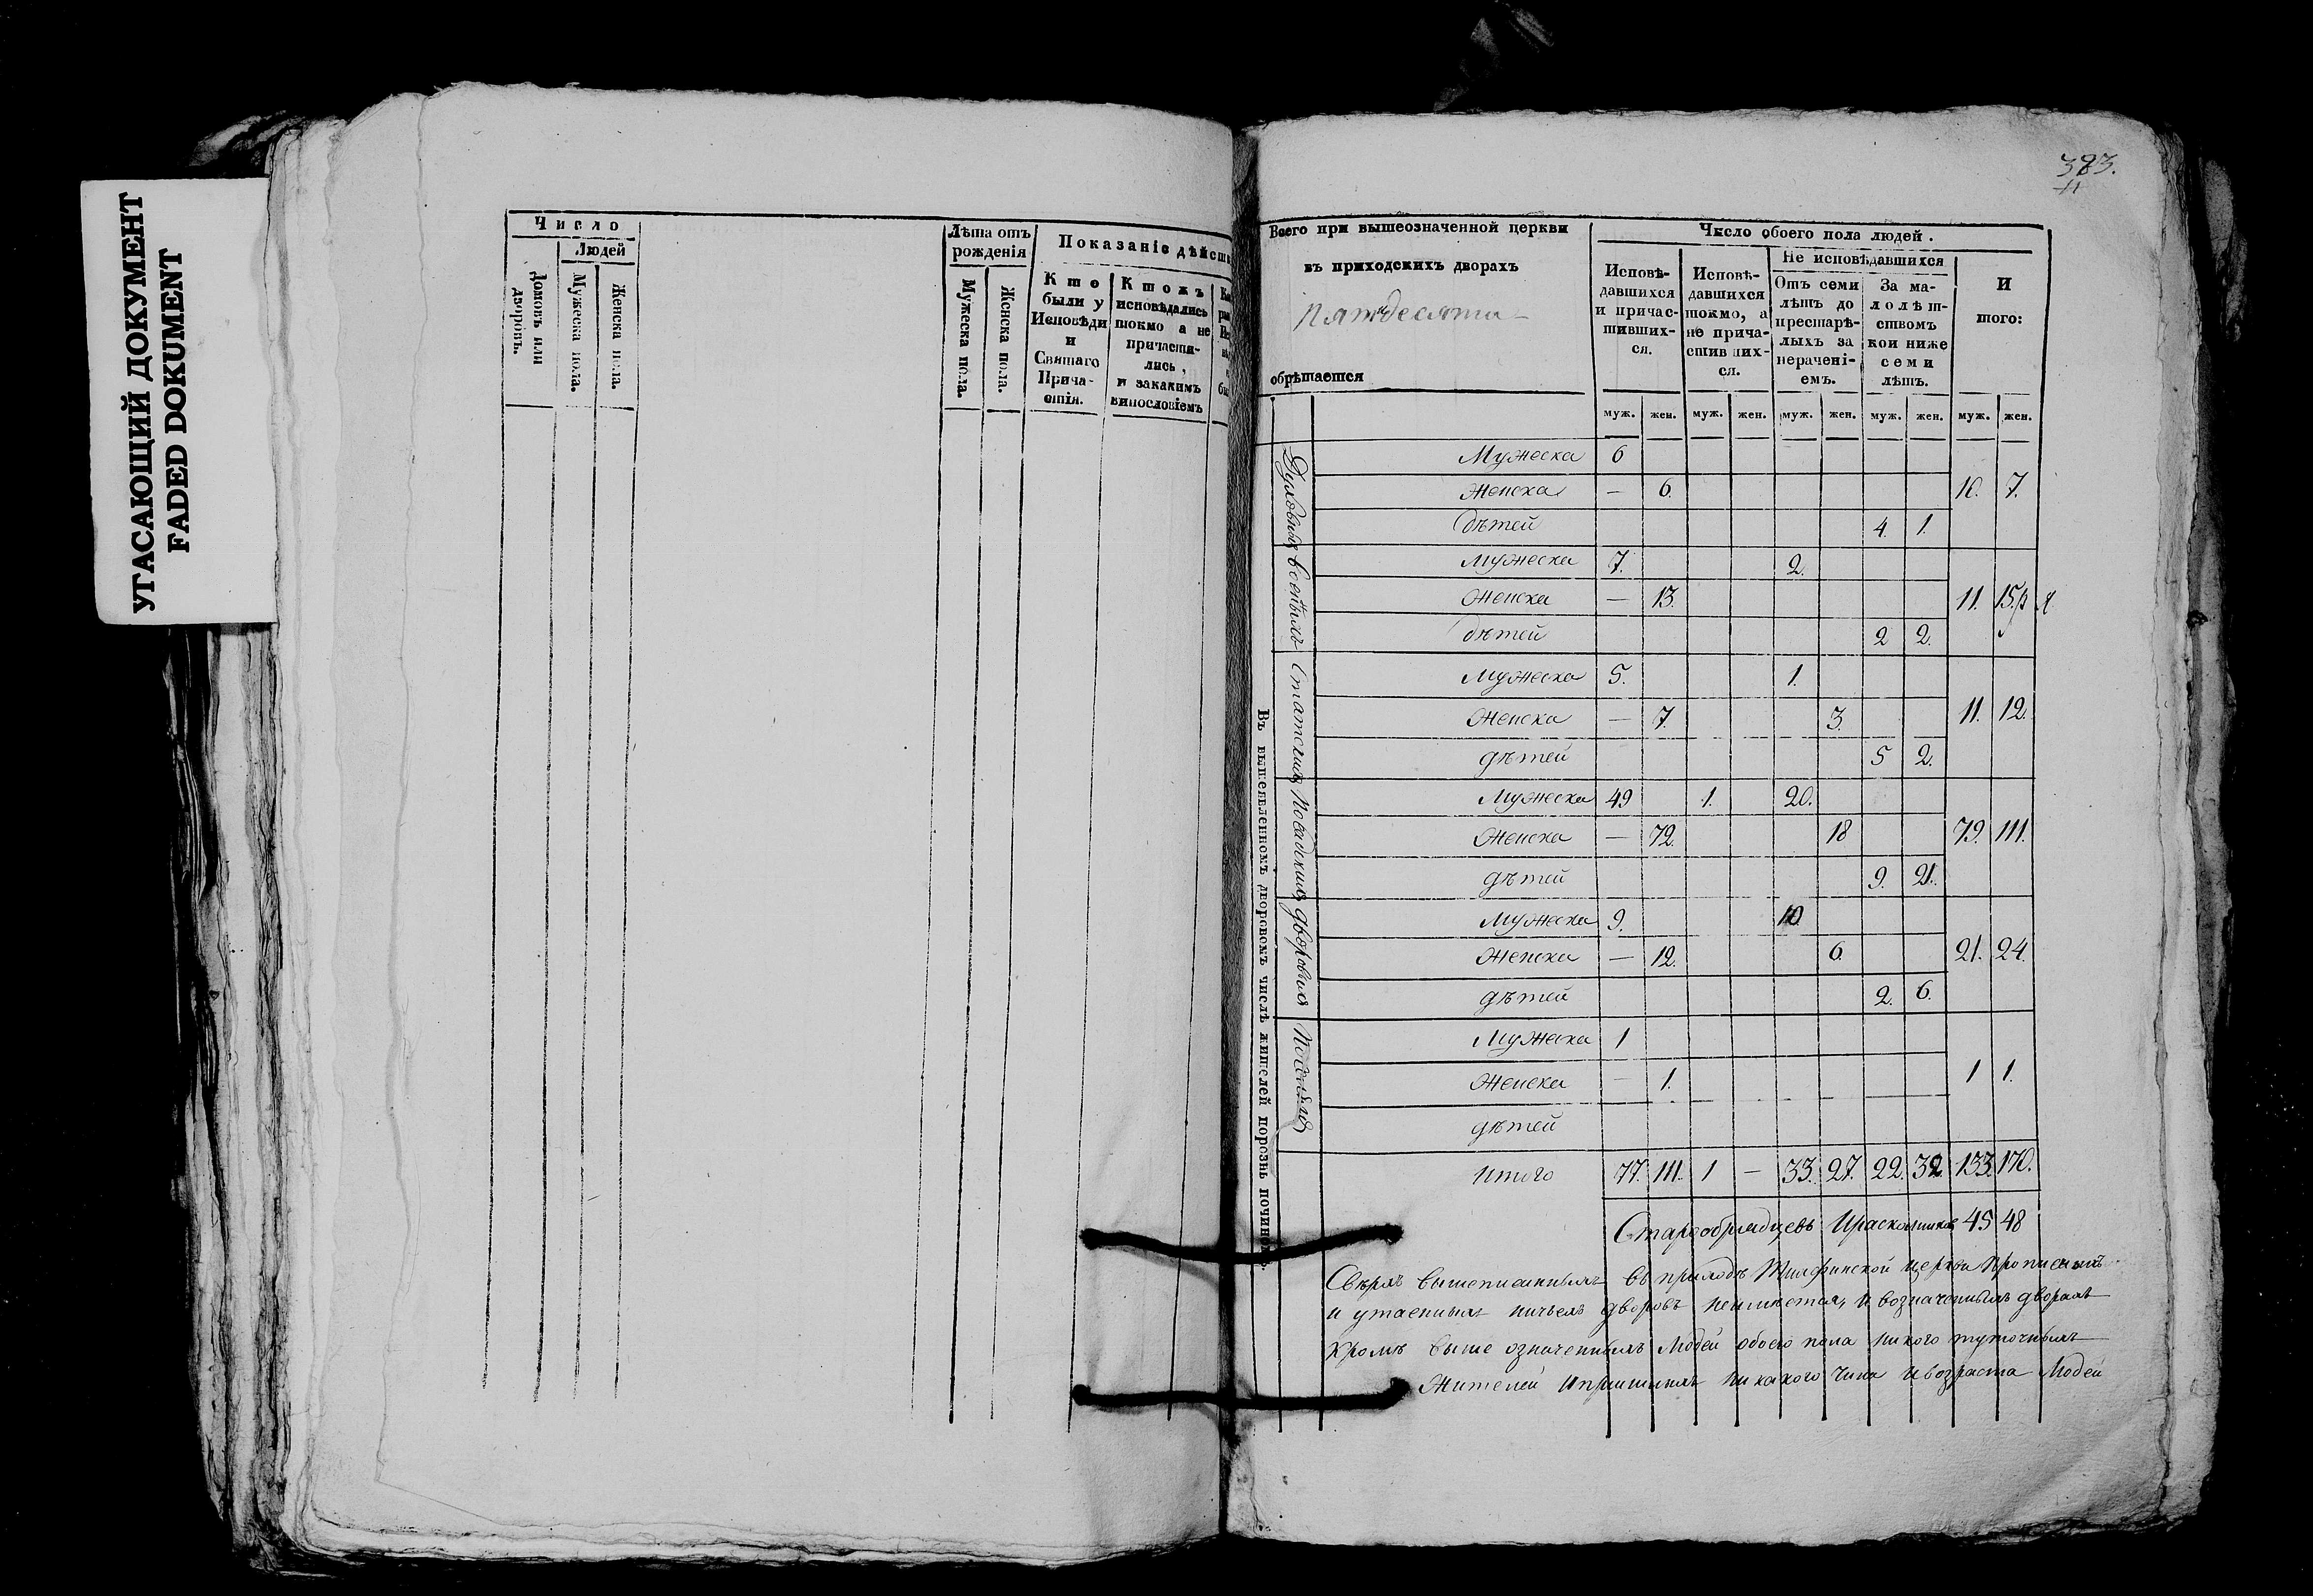 УГАСАЮЩИЙ ДОКУМЕНТ
FADED DOKUMENT
Число
Людей
Домовъ или дворовъ.
Мужеска пола.
Женска пола.
Лѣта отъ рожденія
Мужеска пола.
Женска пола.
Показаніе дѣйств
Кто были у Исповѣди и Святаго Причастія.
Ктожъ исповѣдались токмо а не причастились, и закакимъ винословіемъ
383.
Всего при вышеозначенной церкви
въ приходскихъ дворахъ
Пятидесяти
обрѣтается
Число обоего пола людей.
Исповѣдавшихся и причастившихся.
Исповѣдавшихся токмо, а не причастившихся.
Не исповѣдавшихся
Отъ семи лѣтъ до престарѣлыхъ за нераченіемъ.
За малолѣтствомъ кои ниже семи лѣтъ.
И того:
муж. жен. муж. жен. муж. жен. муж. жен. муж. жен.
Въ вышеявленномъ дворовомъ числѣ жителей порознь чиновъ.
Духовныя
Мужеска 6
Женска — 6. 10. 7.
дѣтей 4. 1.
Военныя
Мужеска 7. 2.
Женска — 13. 11. 15.
дѣтей 2 2.
Статския
Мужеска 5. 1.
Женска — 7. 3. 11. 12.
дѣтей 5 2.
Посадския
Мужеска 49 1. 20.
Женска — 72. 18 79. 111.
дѣтей 9. 21.
Дворовыя
Мужеска 9. 10
Женска — 12. 6. 21. 24.
дѣтей 2. 6.
Мужеска 1
Женска — 1. 1 1.
дѣтей
Итого 77. 111. 1 — 33. 27. 22. 32. 133. 170.
Старообрядцевъ Ираскольниковъ 45 48
Сверхъ вышеписанныхъ въ приходѣ церкви
и утаенныхъ ничьихъ дворовъ неимѣется, и возначенныхъ дворахъ
кромѣ выше означенныхъ людей обоего пола никого туточныхъ
Жителей Ипришлыхъ никакого чина Ивозраста Людей